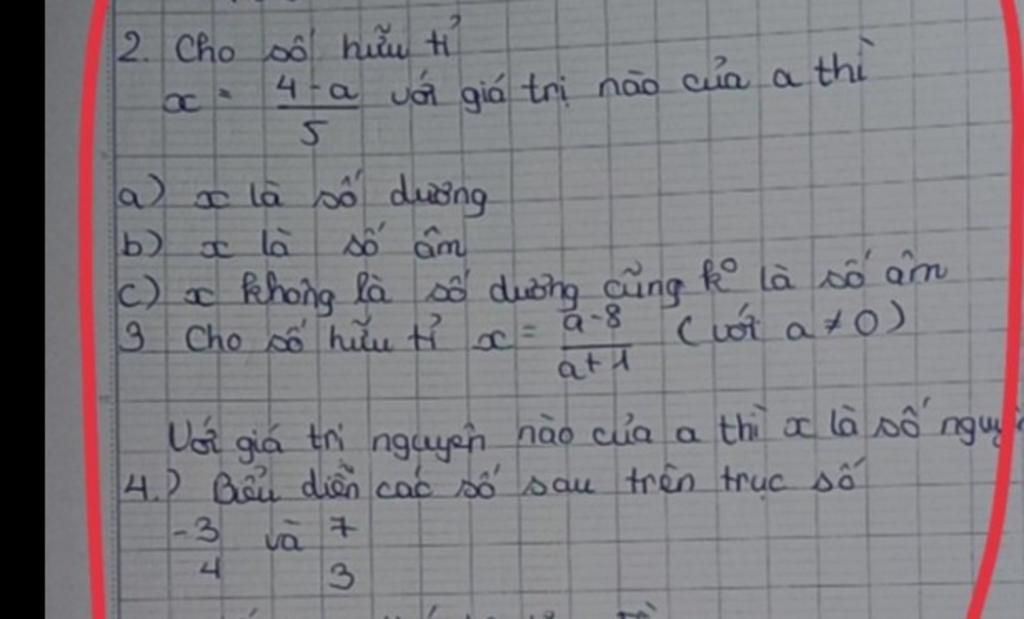 2. Cho số hữu tỉ
x = 4-a/5 với giá trị nào của a thì
a) x là số dương
b) x là số âm
c) x không là số dương cũng k° là số âm
3 Cho số hữu tỉ x = a-8/a+1 (với a ≠ 0)
Với giá trị nguyên nào của a thì x là số nguy
4.) Biểu diễn các số sau trên trục số
-3/4 và 7/3